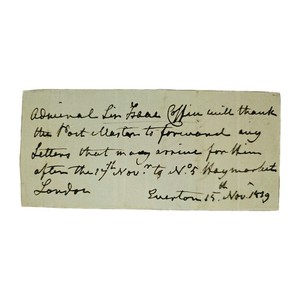 Admiral Sir Isaac Coffin will thank
the Post Master to forward any
Letters that may arrive for Him
after the 17th Novr. to No. 5 Haymarket
London
Everton 15th Novr. 1819